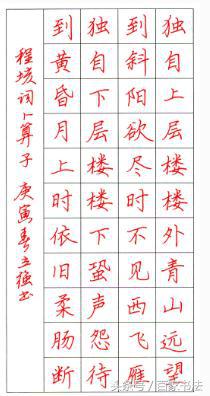 独自上层楼楼外青山远望
到斜阳欲尽时不见西飞雁
独自下层楼楼下蛩声怨待
到黄昏月上时依旧柔肠断
程垓词卜算子 庚寅春立强书
头条号/百家书法